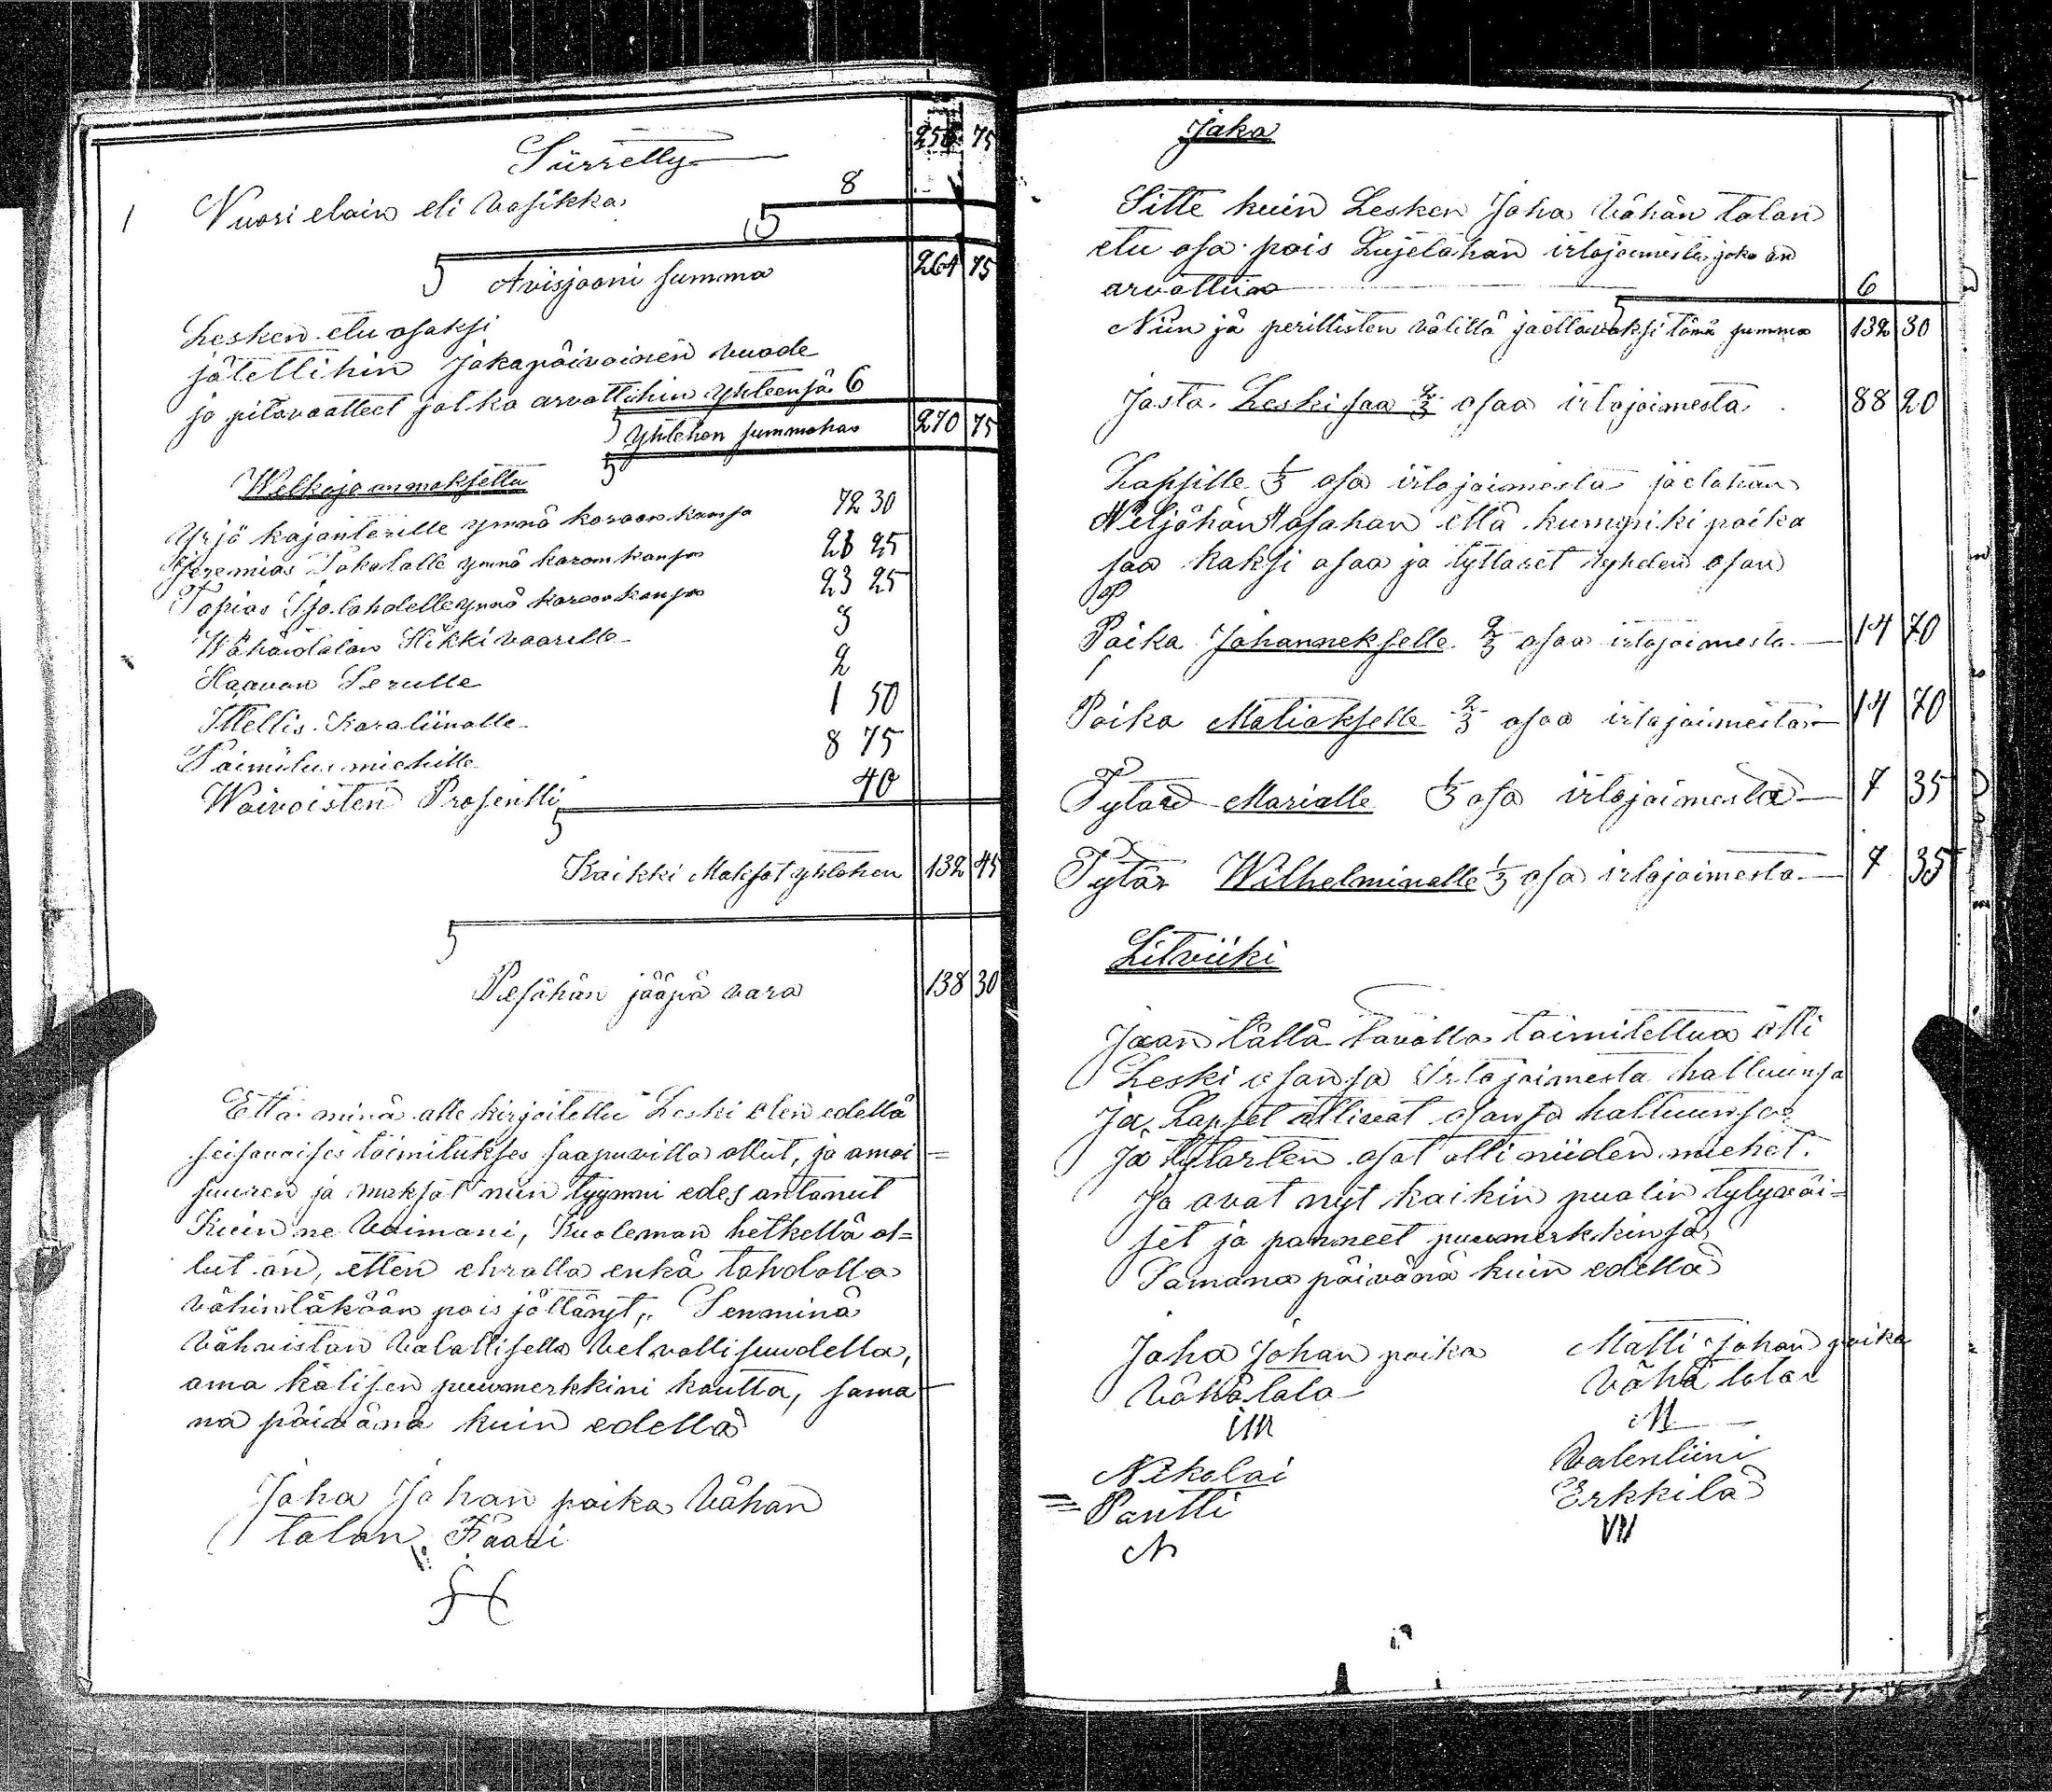 Siirretty 256 75
1 Nuori elain eli Vasikka 8
Avisjooni summa 264 75
Lesken etu osaksi
jätettihin Jokapäiväinen vuode
ja pitovaatteet jotka arvattihin yhteensä 6
Yhtehen summahan 270 75
Welkoja on maksettu
Yrjö kajanterille ynnä koroon kansa 72 30
Jeremias Tokolalle ynnä koron kansa 25
Topias Isolahdelle ynnä koroon kansa 23 25
Wähäntalon Hikki vaarille 3
Haavan Serulle 2
Mellis Karaliinalle 1 50
Toimitus miehille 8 75
Waivoisten Prosentti 40
Kaikki Maksot yhtehen 132 45
Pesähän jääpä vara 138 30
Että minä alle kirjoitettu Leski olen edellä
seisovaises toimitukses saapuvilla ollut, ja amoi=
suuren ja maksot niin tyynni edes antanut
Kuin ne Vaimoni, Kuoleman hetkellä ol=
lut on, etten ehrolla enkä tahdolla
vähintäkään pois jättänyt,. Senminä
vahvistan Valallisella Velvollisuudella,
oma kätisen puumerkkini kautta, sama
na päivänä kuin edellä
Joha Johan poika Vähän
talon Faari
H
Jako
Sitte kuin Lesken Joha Vähän talon
etu osa pois Lujetahan irtajoimesta joka on
arvattu 6
Niin jä perillisten välillä jaettavaksi tämä summa 132 30
Josta Leski saa 2/3 osaa irtajoimesta 88 20
Lapsille 1/3 osa irtajoimesta jaetahan
Neljähän osahan että kumpiki poika
saa kaksi osaa ja tyttäret yhden osan
Poika Johannekselle 2/3 osaa irtajoimesta 14 70
Poika Matiakselle 2/3 osaa irtajoimesta 14 70
Tytär Marialle 1/3 osa irtajoimesta 7 35
Tytär Wilhelminalle 1/3 osa irtajoimesta 7 35
Litviiki
Jaon tällä tavalla toimitettua otti
Leski osansa Irtajoimesta haltuunsa
Ja Lapset ottivat osansa haltuunsa
Ja tytärten osat otti niiden miehet.
Ja ovat nyt kaikin puolin tytyväi=
set ja panneet puumerkkinsä
Samana päivänä kuin edellä
Joha Johan poika Matti Johan poika
Vähätalo Vähätalo
M
Nikolai Valentiini
Pantti Erkkilä
N VN